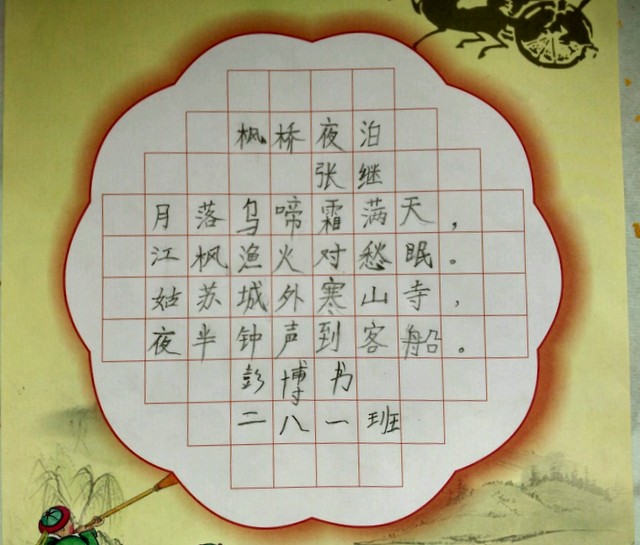 枫桥夜泊
张继
月落乌啼霜满天，
江枫渔火对愁眠。
姑苏城外寒山寺，
夜半钟声到客船。
彭博书
二八一班